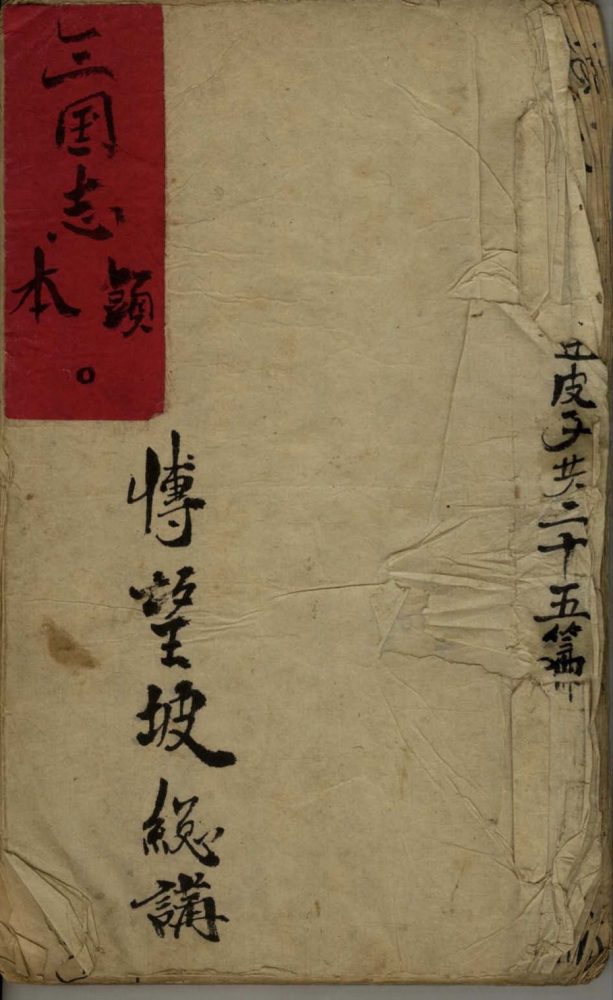 皮子共二十五篇
愽望坡緫講
三国志
頭本。